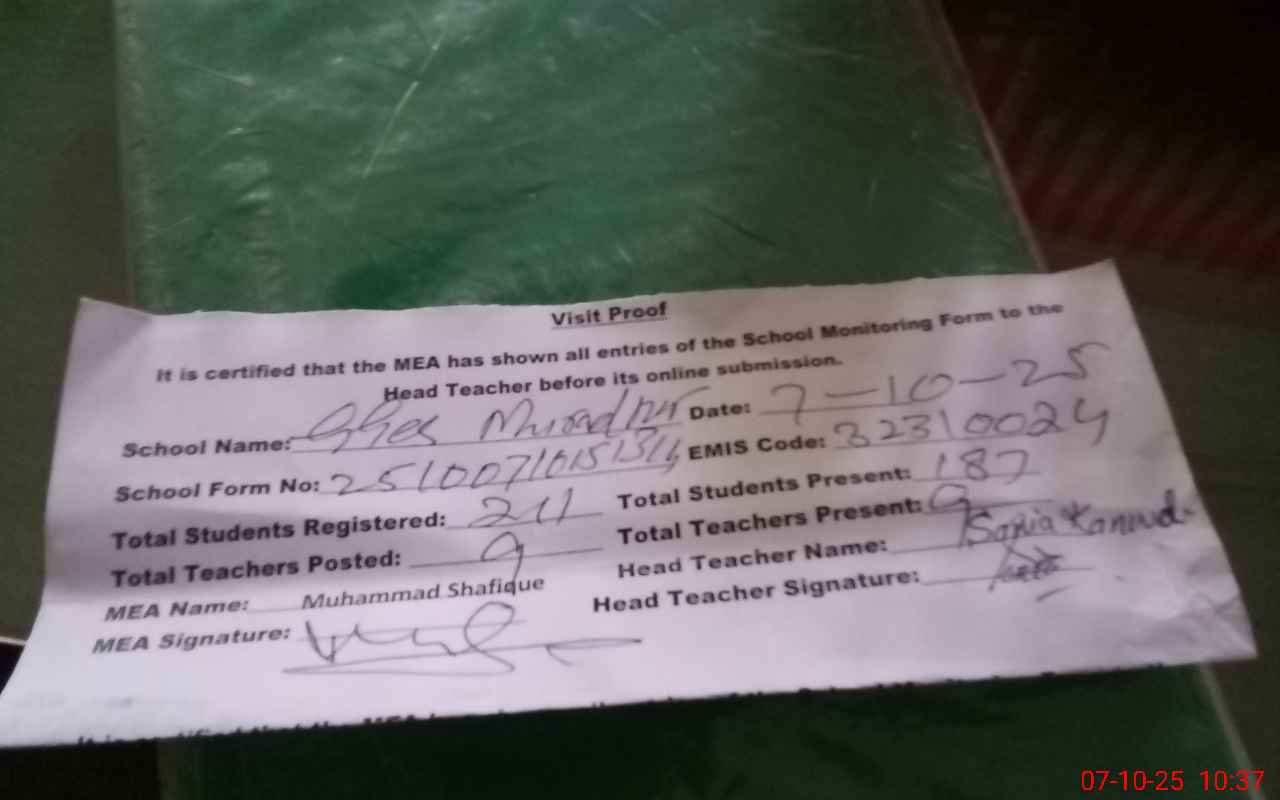 Visit Proof
It is certified that the MEA has shown all entries of the School Monitoring Form to the
Head Teacher before its online submission.
School Name: GGES Muradpur Date: 7-10-25
School Form No: EMIS Code: 32310024
Total Students Registered: 211 Total Students Present: 187
Total Teachers Posted: 9 Total Teachers Present: 9
MEA Name: Muhammad Shafique Head Teacher Name: Kanwal
MEA Signature: Head Teacher Signature:
07-10-25 10:37